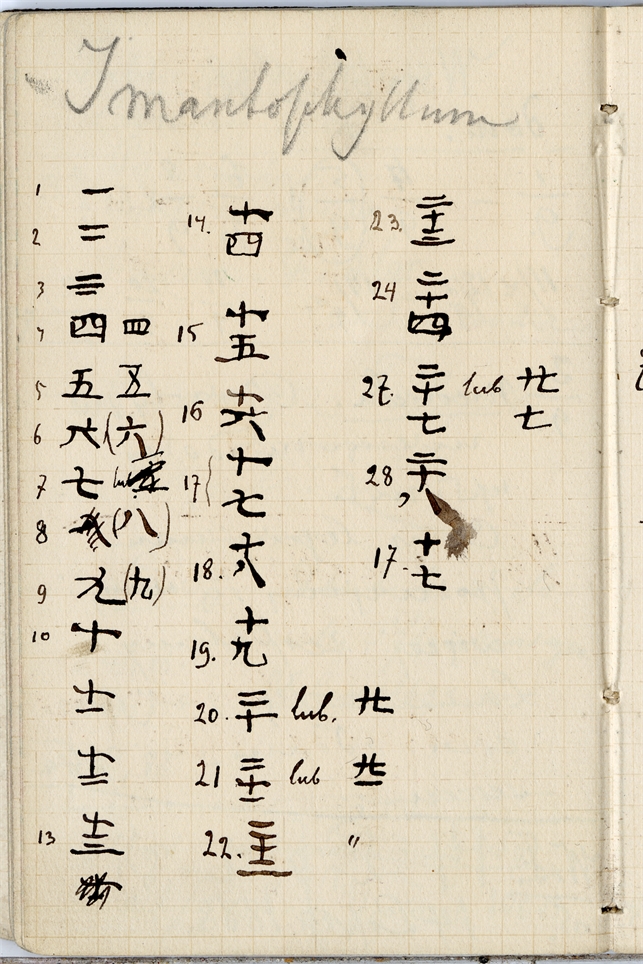 Imantophyllum
1 一
2 二
3 三
4 四 四
5 五 五
6 六 (六)
7 七 lub
8 (八)
9 九 (九)
10 十
十一
十二
13 十三
14. 十四
15 十五
16 十六
17 十七
18. 十八
19. 十九
20. 二十 lub. 廿
21 二十一 lub 廿一
22. 二十二 "
23. 二十三
24 二十四
27. 二十七 lub 廿七
28, 二十
17. 十七